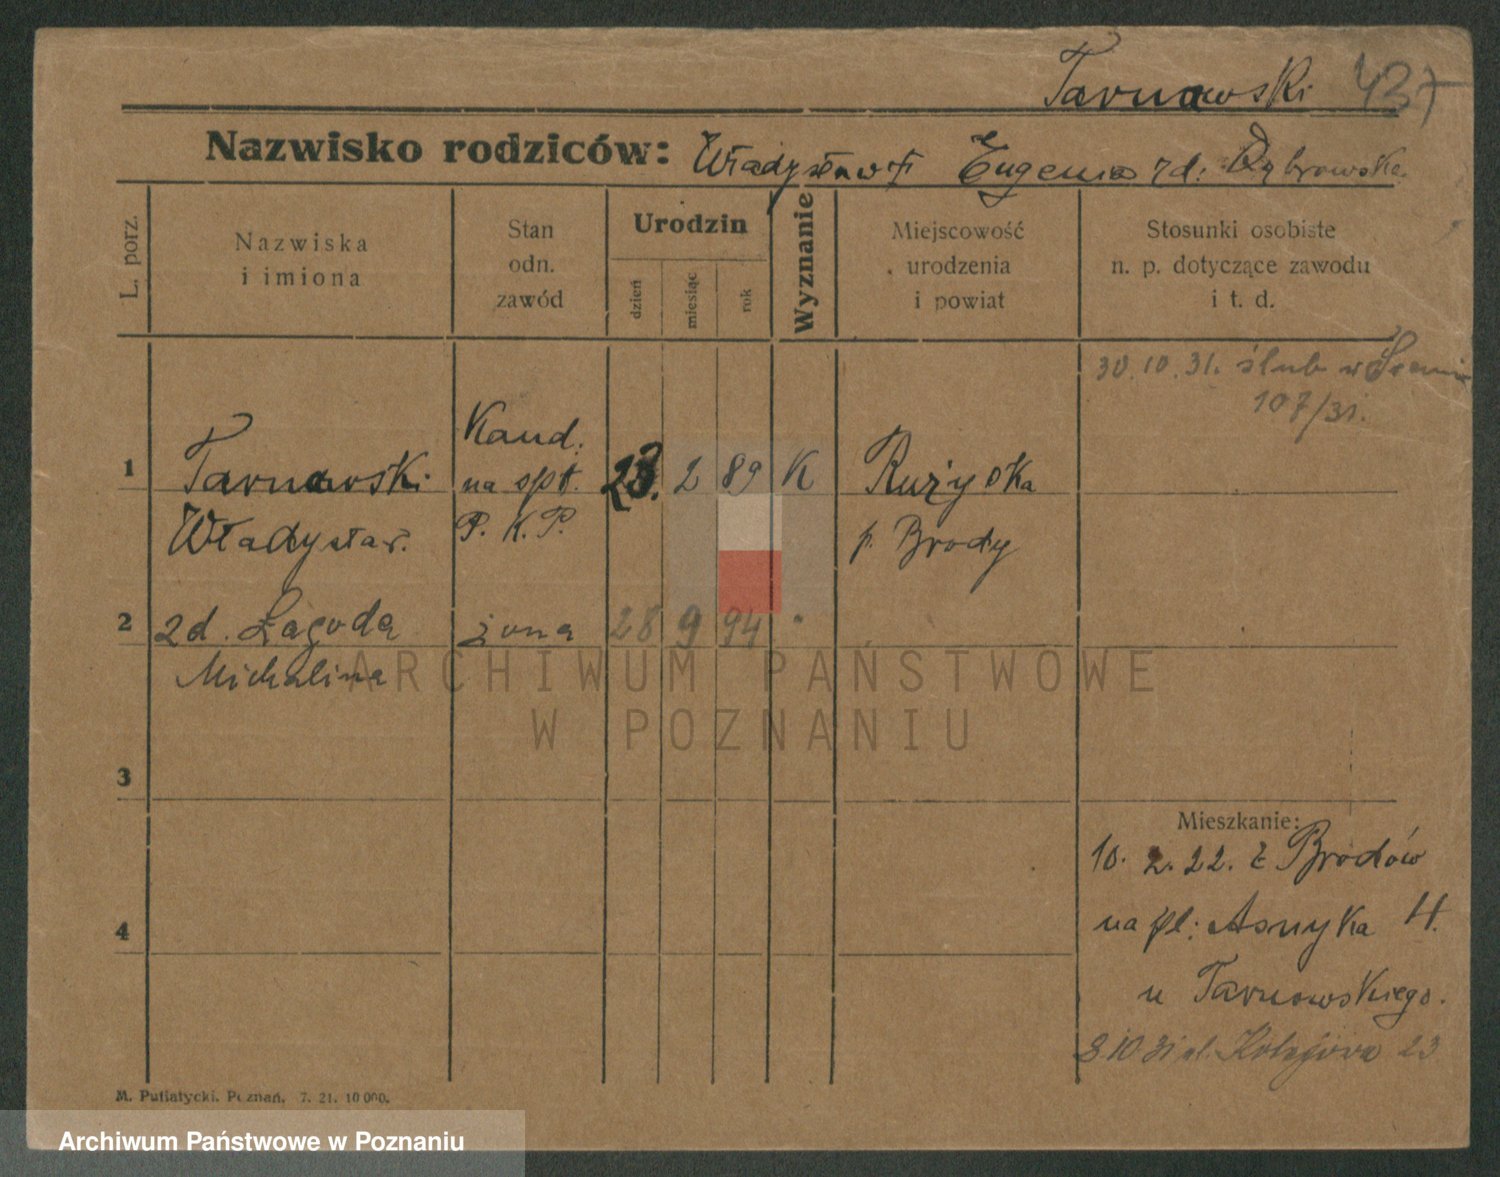 Tarnawski 437
Nazwisko rodziców: Władysław Eugenia zd. Dąbrowska.
L. porz.
Nazwiska
i imiona
Stan
odn.
zawód
Urodzin
dzień
miesiąc
rok
Wyznanie
Miejscowość
urodzenia
i powiat
Stosunki osobiste
n. p. dotyczące zawodu
i t. d.
30.10.31. ślub w
107/31.
1 Tarnawski Kand. 23. 2 89 K Rużyska
na spt.
Władysław. P. K. P. p. Brody
2 zd. Łagoda żona 28 9 94 "
Michalina
ARCHIWUM PAŃSTWOWE
W POZNANIU
3
Mieszkanie:
10. 2. 22. z Brodów
4 na pl: Asnyka 4.
u Tarnowskiego.
8.10.31 ul. 23
M. Putiatycki. Poznań. 7. 21. 10 000.
Archiwum Państwowe w Poznaniu